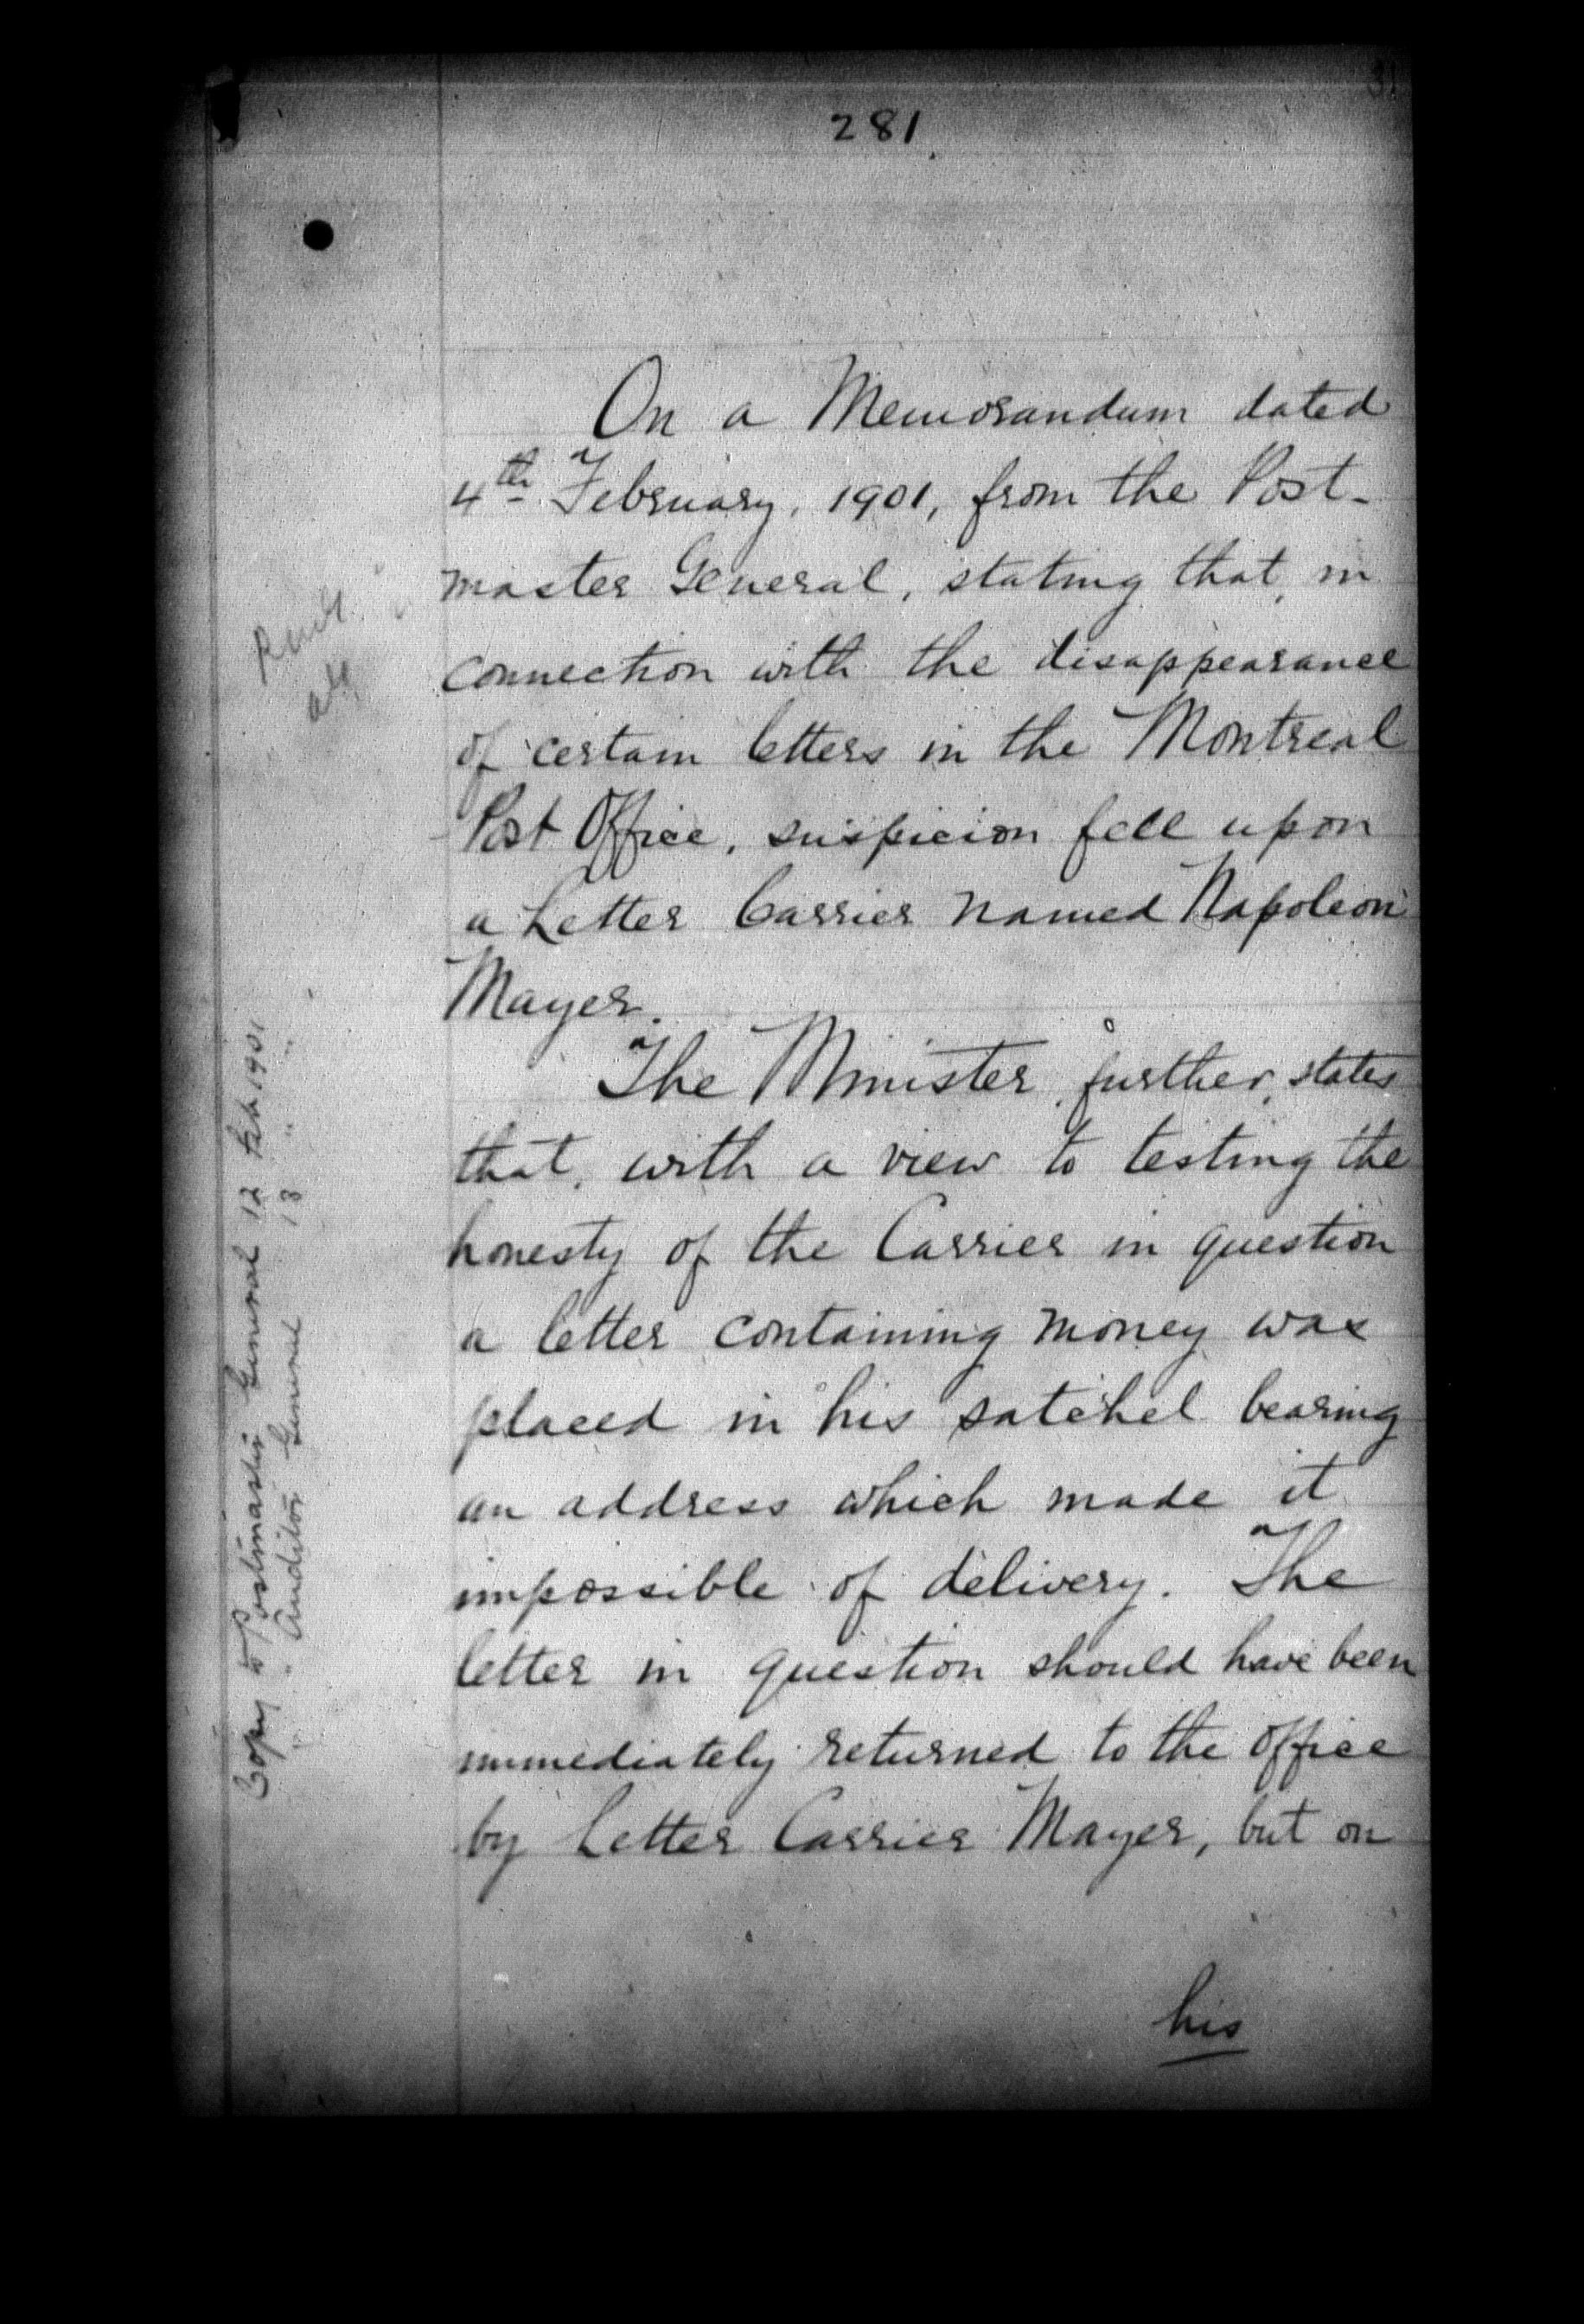 31
281
On a Memorandum dated
4th February, 1901, from the Post-
master General, stating that, in
connection with the disappearance
of certain letters in the Montreal
Post Office, suspicion fell upon
a Letter Carrier named Napoleon
Mayer.
The Minister, further, states
that, with a view to testing the
honesty of the Carrier in question
a letter containing money was
placed in his satchel bearing
an address which made it
impossible of delivery. The
letter in question should have been
immediately returned to the Office
by Letter Carrier Mayer, but on
his
Copy to Postmaster General 12 Feb. 1901
" " Auditor General 13 " "